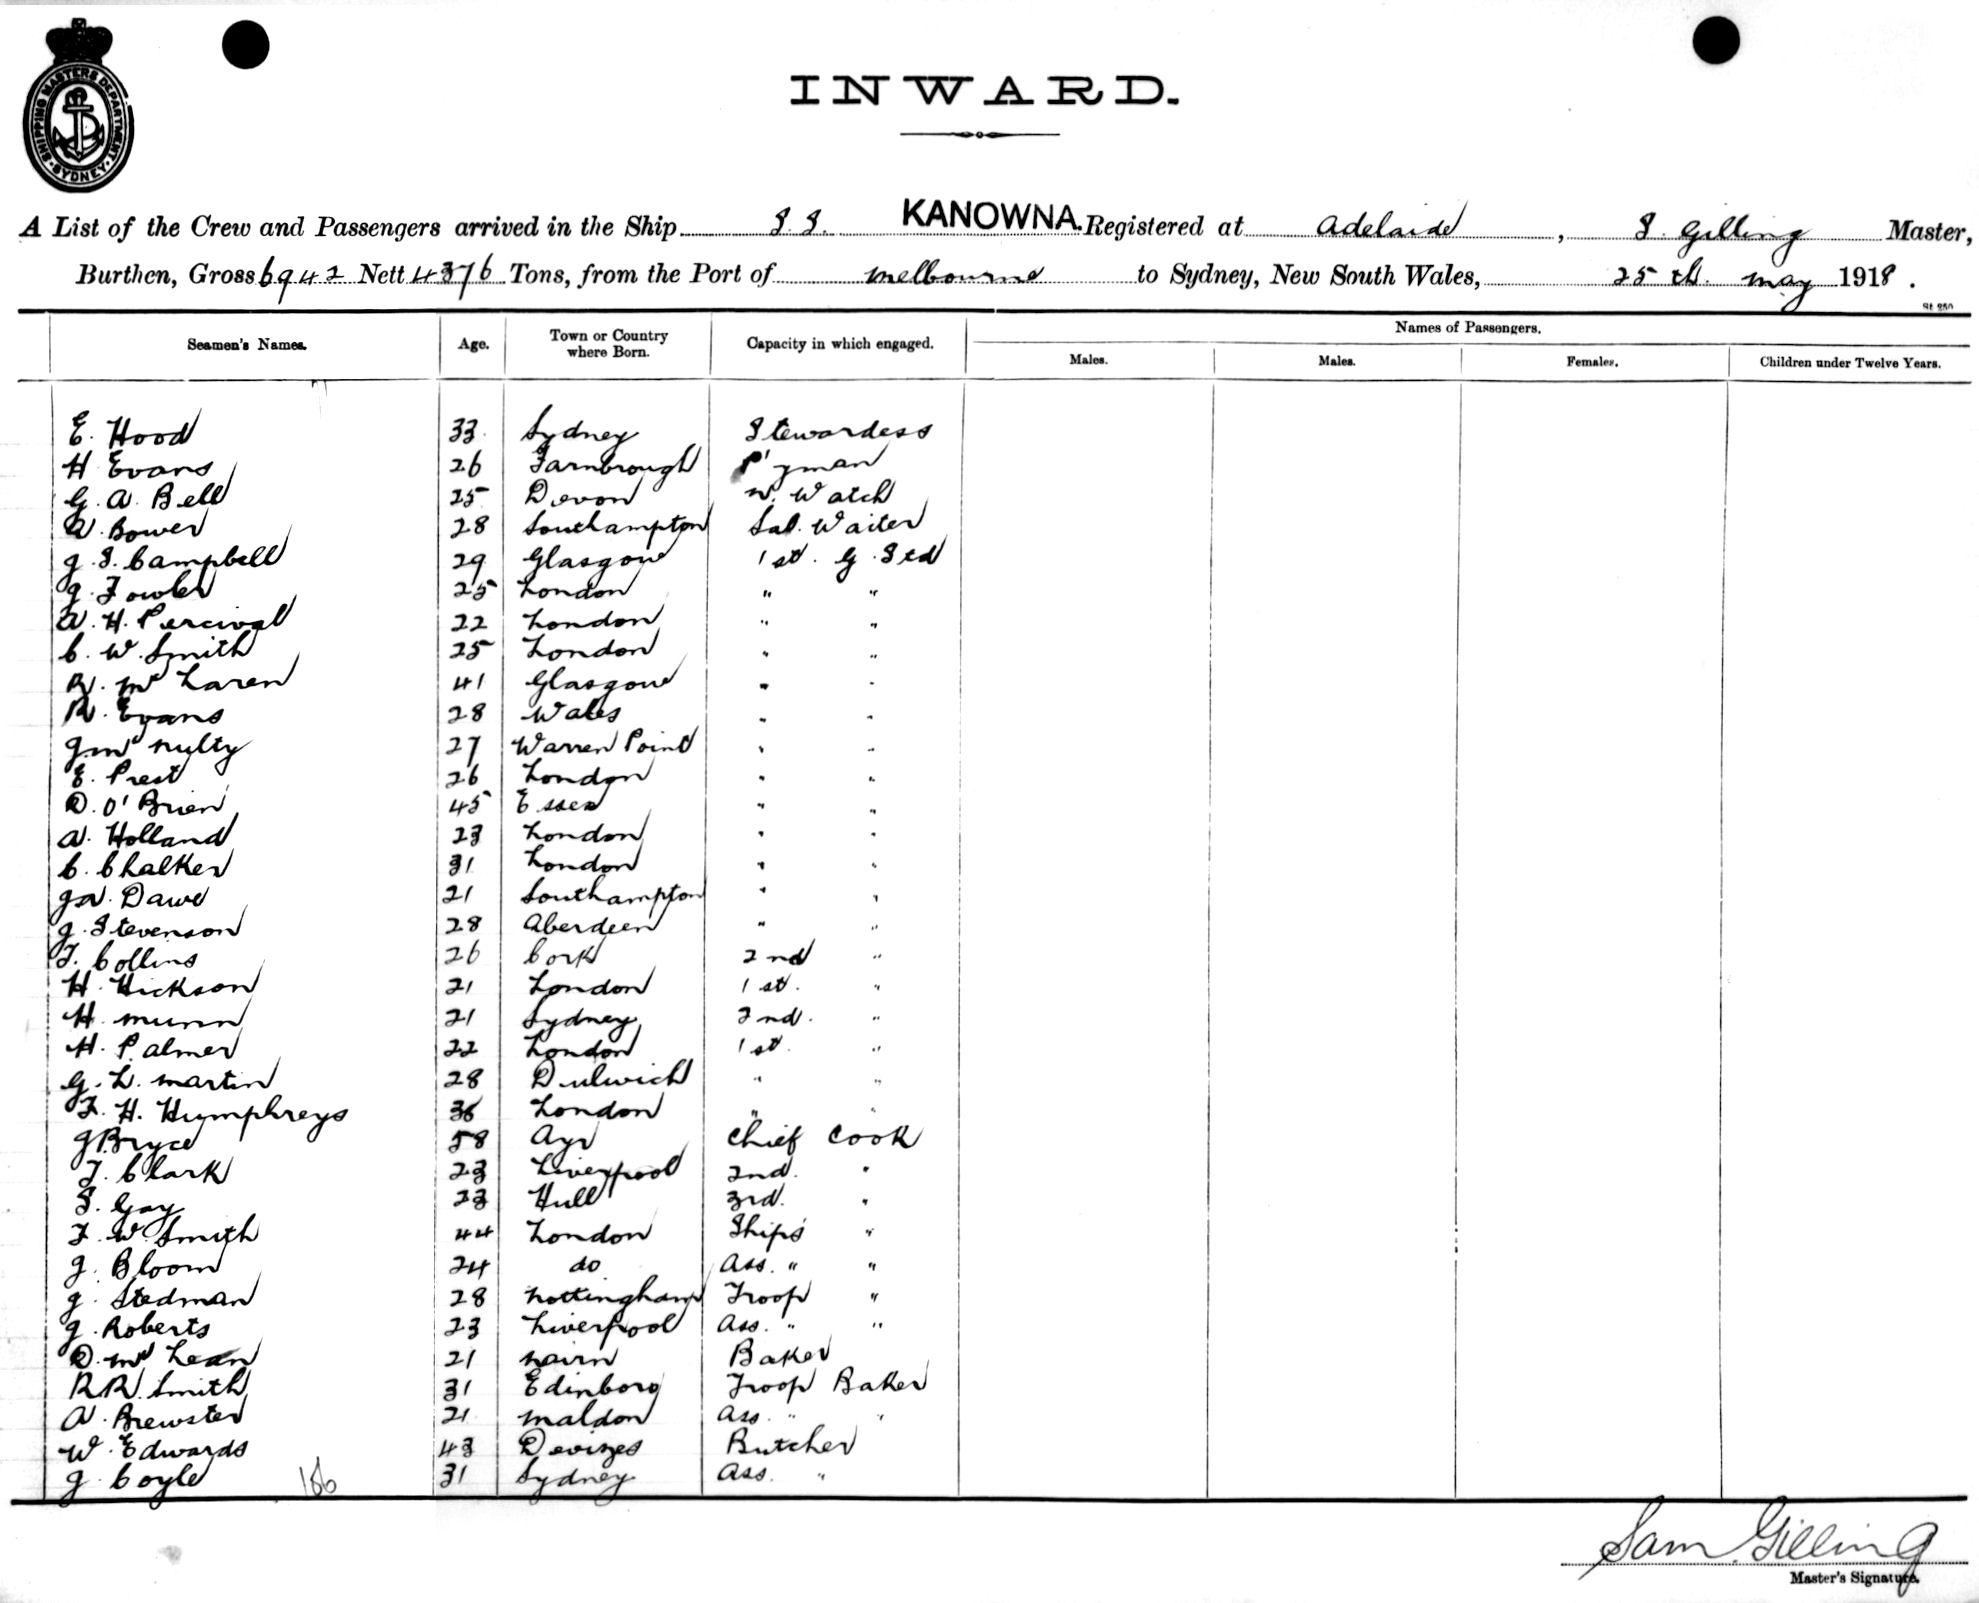 SHIPPING MASTERS DEPARTMENT. SYDNEY.
INWARD.
A List of the Crew and Passengers arrived in the Ship S.S. KANOWNA Registered at Adelaide, S. Gilling Master,
Burthen, Gross 6942 Nett 4376 Tons, from the Port of Melbourne to Sydney, New South Wales, 25th May 1918.
Names of Passengers.
Seamen's Names. Age. Town or Country where Born. Capacity in which engaged. Males. Males. Females. Children under Twelve Years.
E. Hood 33 Sydney Stewardess
H Evans 26 Farnbrough P'yman
G. A. Bell 25 Devon N. Watch
A. Bower 28 Southampton Sal. Waiter
J. S. Campbell 29 Glasgow 1st. G. Std
J. Fowler 25 London " "
A. H. Percival 22 London " "
C. W. Smith 25 London " "
R. Mc Laren 41 Glasgow " "
R. Evans 28 Wales " "
J Mc Nulty 27 Warren Point " "
E. Prest 26 London " "
D. O'Brien 45 Essex " "
A. Holland 23 London " "
C. Chalker 31 London " "
J A. Dawe 21 Southampton " "
J. Stevenson 28 Aberdeen " "
T. Collins 26 Cork 2nd "
H. Hickson 21 London 1st. "
H. Munn 21 Sydney 2nd. "
H. Palmer 22 London 1st. "
G. L. Martin 28 Dulwich " "
F. H. Humphreys 36 London " "
J Bryce 58 Ayr Chief Cook
T. Clark 23 Liverpool 2nd. "
S. Gay 23 Hull 3rd. "
F. W. Smith 44 London Ships "
J. Bloom 24 do Ass. " "
J. Stedman 28 Nottingham Troop "
J. Roberts 23 Liverpool Ass. " "
D. Mc Lean 21 Nairn Baker
R. R. Smith 31 Edinboro Troop Baker
A. Brewster 21 Maldon Ass. " "
W. Edwards 43 Devizes Butcher
J. Coyle 31 Sydney Ass. "
166
Sam. Gilling
Master's Signature.